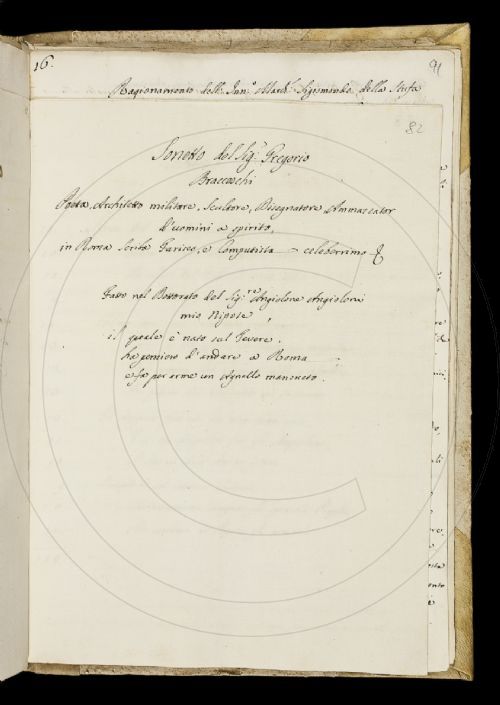 16.
91
Ragionamento dell' Sigismondo della Stufa
82
Sonetto del Sig.r Gregorio
Bracceschi
Poeta, Architetto militare, Scultore, Disegnatore Ammazzator
d'uomini a spirito,
in Roma Scriba Fariseo, e Computista celeberrimo &
Fatto nel Dottorato del Sig.re Angiolone Angioloni
mio Nipote,
il quale è nato sul Tevere.
ha pensiero d'andare a Roma
e fa per arme un Agnello mansueto.